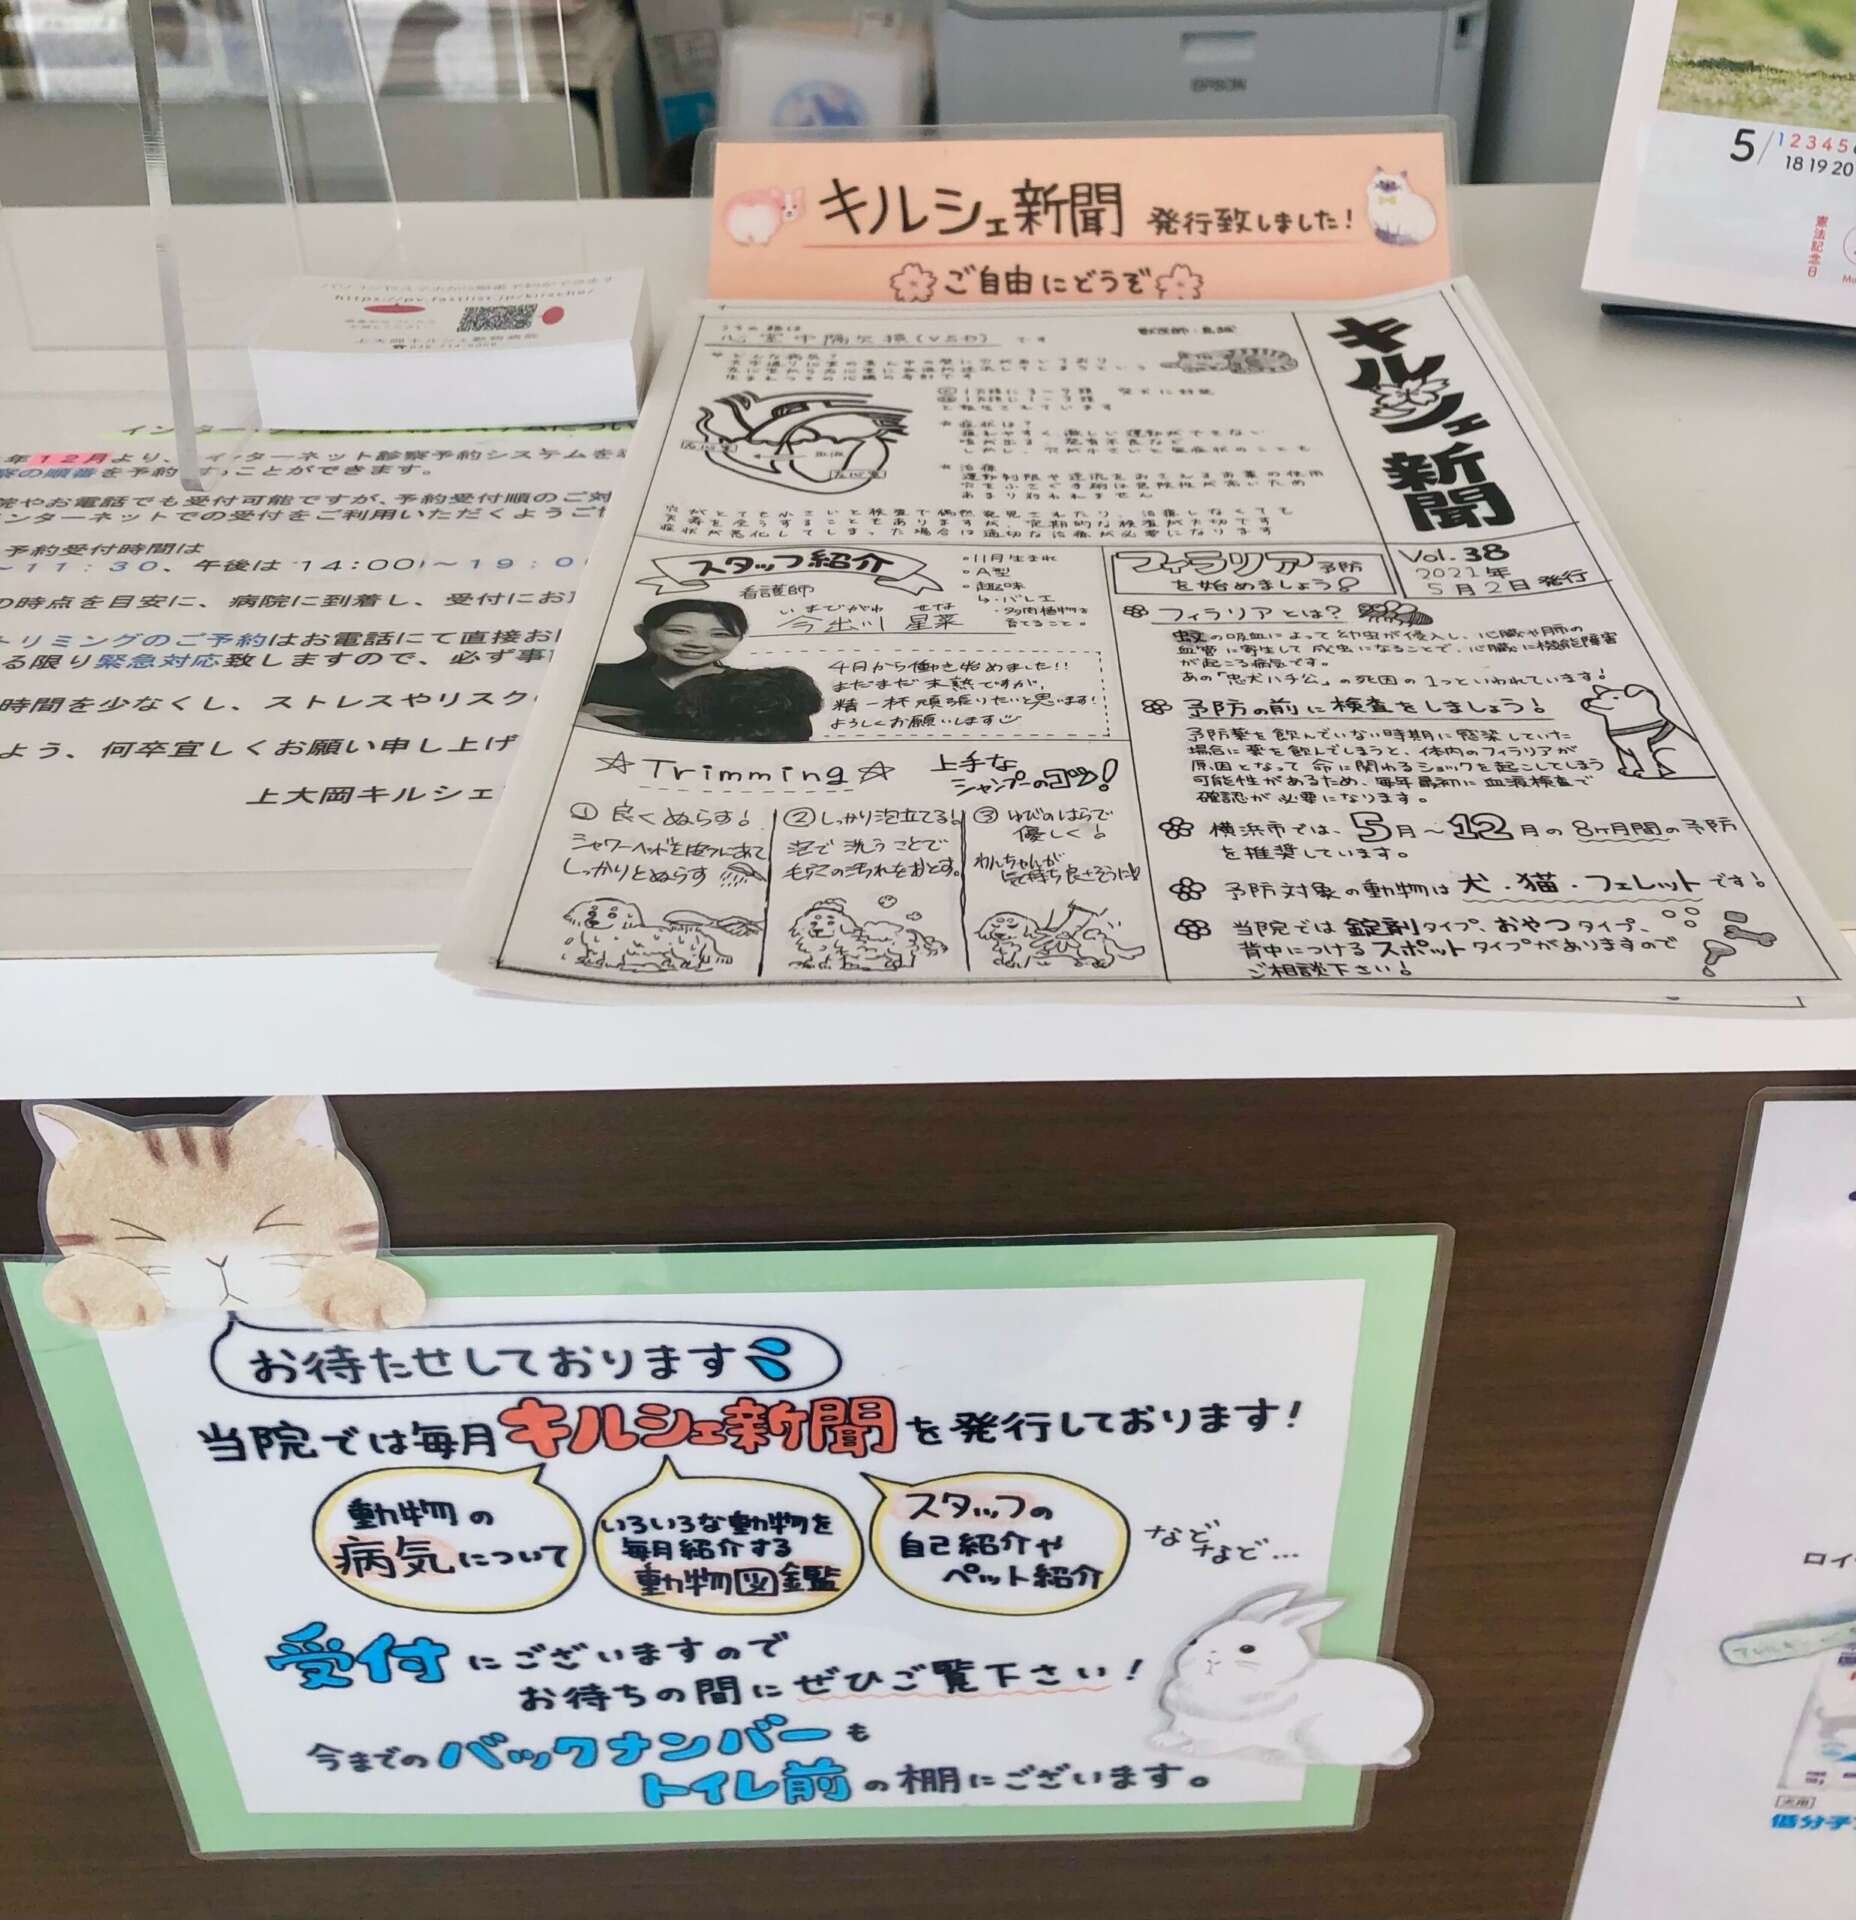 EPSON
5/1 2 3 4 5
18 19 20
憲法記念日
キルシェ新聞 発行致しました!
ご自由にどうぞ
https://pv.fastlist.jp/kirsche/
上大岡キルシェ動物病院
年12月より、インターネット診察予約システムを
察の順番を予約することができます。
院やお電話でも受付可能ですが、予約受付順のご対
ンターネットでの受付をご利用いただくようご
予約受付時間は
~11:30、午後は14:00~19:0
の時点を目安に、病院に到着し、受付にお
トリミングのご予約はお電話にて直接お
る限り緊急対応致しますので、必ず事
時間を少なくし、ストレスやリスク
よう、何卒宜しくお願い申し上げ
上大岡キルシェ
キルシェ新聞
Vol.38
2021年
5月2日発行
心室中隔欠損(VSD)です
どんな病気?
症状は?
治療
運動制限や逆流をおさえるお薬の使用
穴をふさぐ手術は危険性が高いため
あまり行われません
穴がとても小さいと検査で偶然発見されたり、治療しなくても
天寿を全うすることもありますが、定期的な検査が大切です
症状が悪化してしまった場合は適切な治療が必要になります
スタッフ紹介
看護師
いまでがわ せな
今出川 星菜
・11月生まれ
・A型
・趣味
・バレエ
・多肉植物を
育てること。
4月から働き始めました!!
まだまだ未熟ですが、
精一杯頑張りたいと思います!
よろしくお願いします
フィラリア予防
を始めましょう!
フィラリアとは?
蚊の吸血によって幼虫が侵入し、心臓や肺の
血管に寄生して成虫になることで、心臓に機能障害
が起こる病気です。
あの「忠犬ハチ公」の死因の1つといわれています!
予防の前に検査をしましょう!
予防薬を飲んでいない時期に感染していた
場合に薬を飲んでしまうと、体内のフィラリアが
原因となって命に関わるショックを起こしてしまう
可能性があるため、毎年最初に血液検査で
確認が必要になります。
横浜市では、5月~12月の8ヶ月間の予防
を推奨しています。
予防対象の動物は犬・猫・フェレットです!
当院では錠剤タイプ、おやつタイプ、
背中につけるスポットタイプがありますので
ご相談下さい!
☆Trimming☆ 上手な
シャンプーのコツ!
①良くぬらす!
シャワーヘッドを皮フにあて
しっかりとぬらす
②しっかり泡立てる!
泡で洗うことで
毛穴の汚れをおとす。
③ゆびのはらで
優しく!
わんちゃんが
気持ち良さそうに
お待たせしております
当院では毎月キルシェ新聞を発行しております!
動物の
病気について
いろいろな動物を
毎月紹介する
動物図鑑
スタッフの
自己紹介や
ペット紹介
などなど…
受付にございますので
お待ちの間にぜひご覧下さい!
今までのバックナンバーも
トイレ前の棚にございます。
ロイ
犬用
低分子